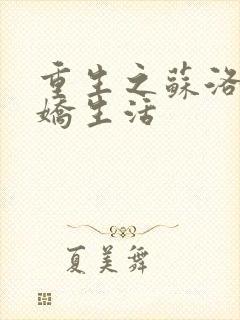 重生之蘇洛
嬌生活
夏美舞